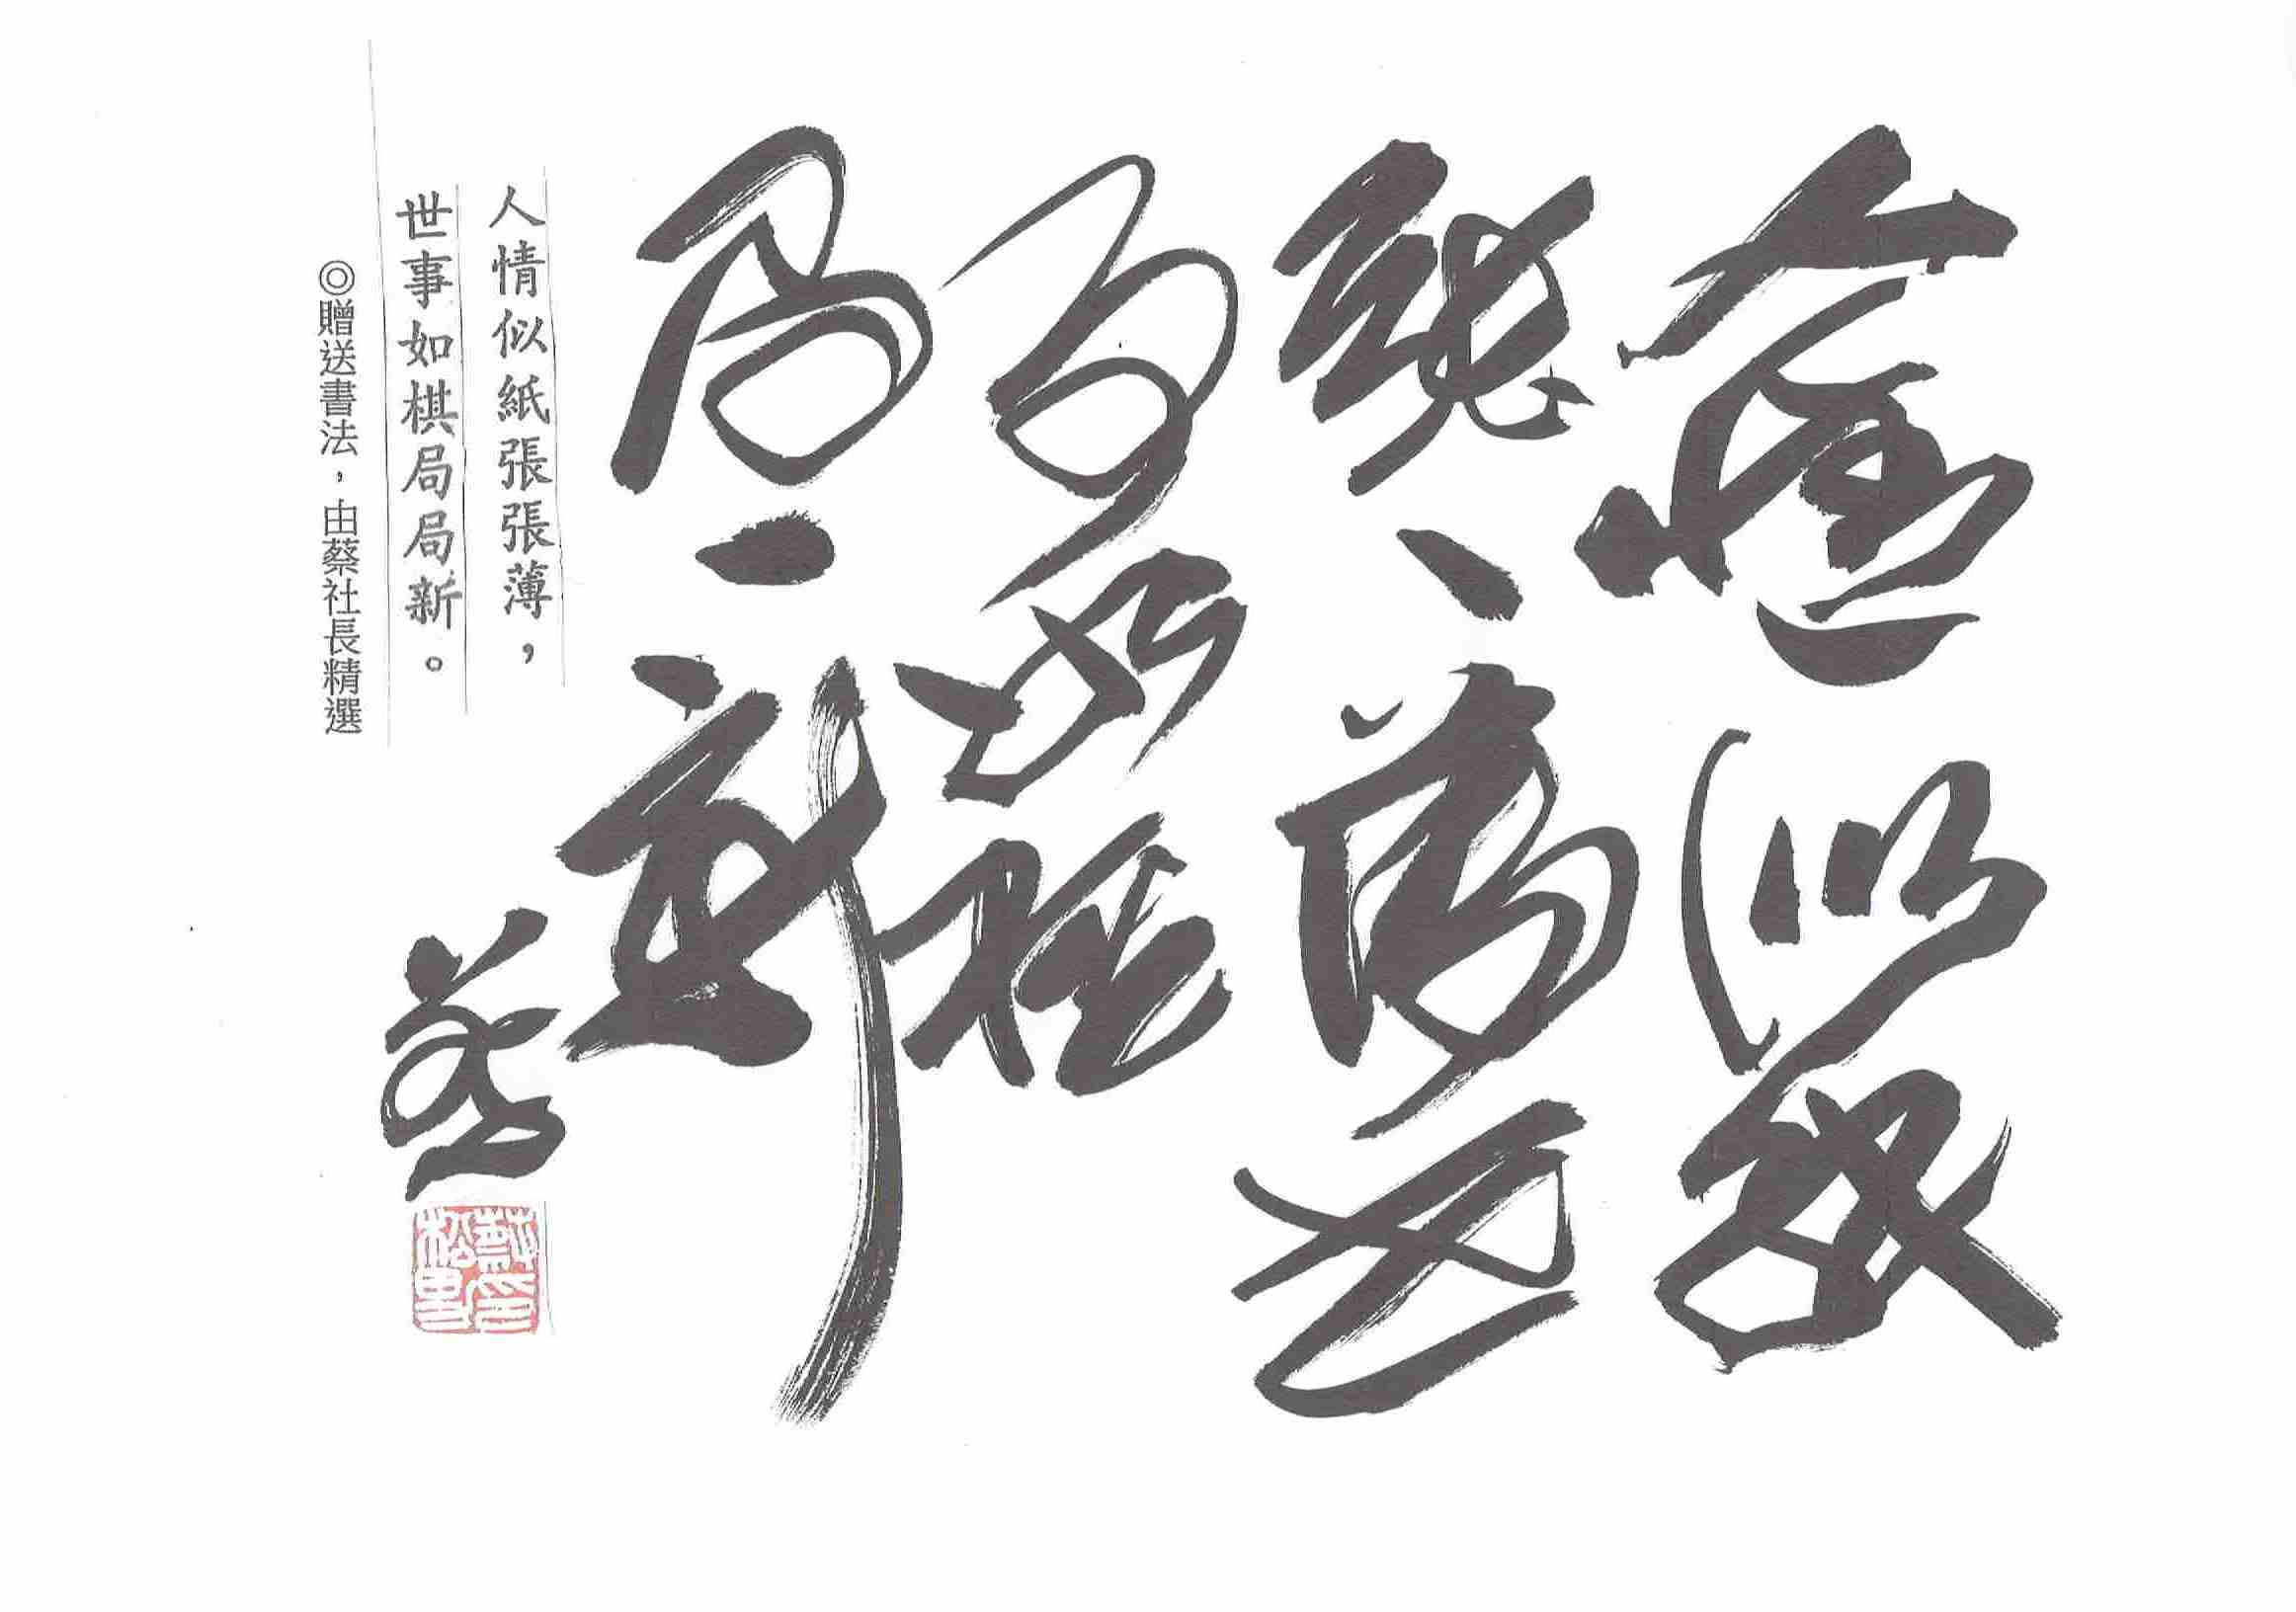 人情似紙
張、薄世
事如棋
局、新
蔡
人情似紙張張薄，
世事如棋局局新。
◎贈送書法，由蔡社長精選